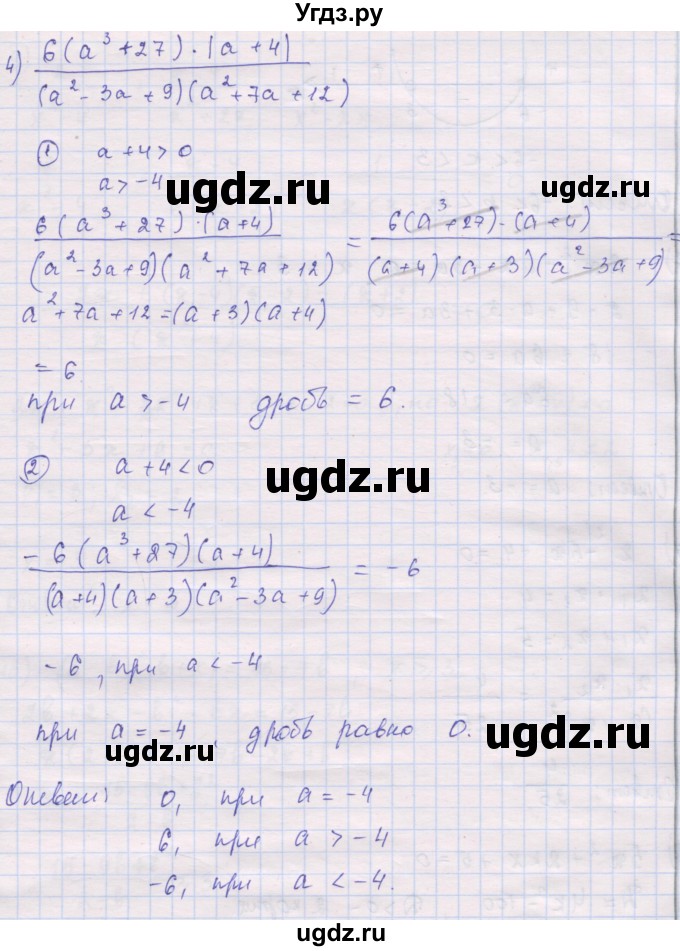 Угдз.ру
4) 6(a³+27)·|a+4|
(a²-3a+9)(a²+7a+12)
① a+4>0
a>-4
ugdz.ru
ugdz.ru
6(a³+27)·(a+4) = 6(a³+27)·(a+4) =
(a²-3a+9)(a²+7a+12) (a+4)(a+3)(a²-3a+9)
a²+7a+12=(a+3)(a+4)
= 6
при a>-4 дробь = 6.
ugdz.ru
② a+4<0
ugdz.ru
a<-4
-6(a³+27)(a+4) = -6
(a+4)(a+3)(a²-3a+9)
-6, при a<-4
ugdz.ru
при a=-4, дробь равно 0.
ugdz.ru
Ответ: 0, при a=-4
6, при a>-4
-6, при a<-4.
ugdz.ru
©ugdz.ru